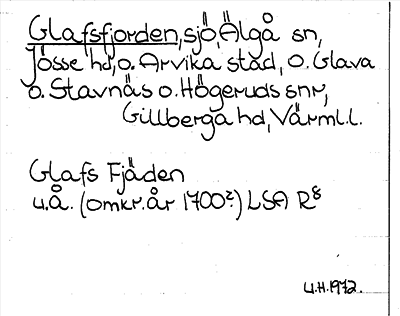 Glafsfjorden, sjö, Älgå sn,
Jösse hd, o. Arvika stad, o. Glava
o. Stavnäs o. Högeruds snr,
Gillberga hd, Värml.l.
Glafs Fjäden
u.å. (omkr. år 1700?) LSA R8
U.H. 1972.